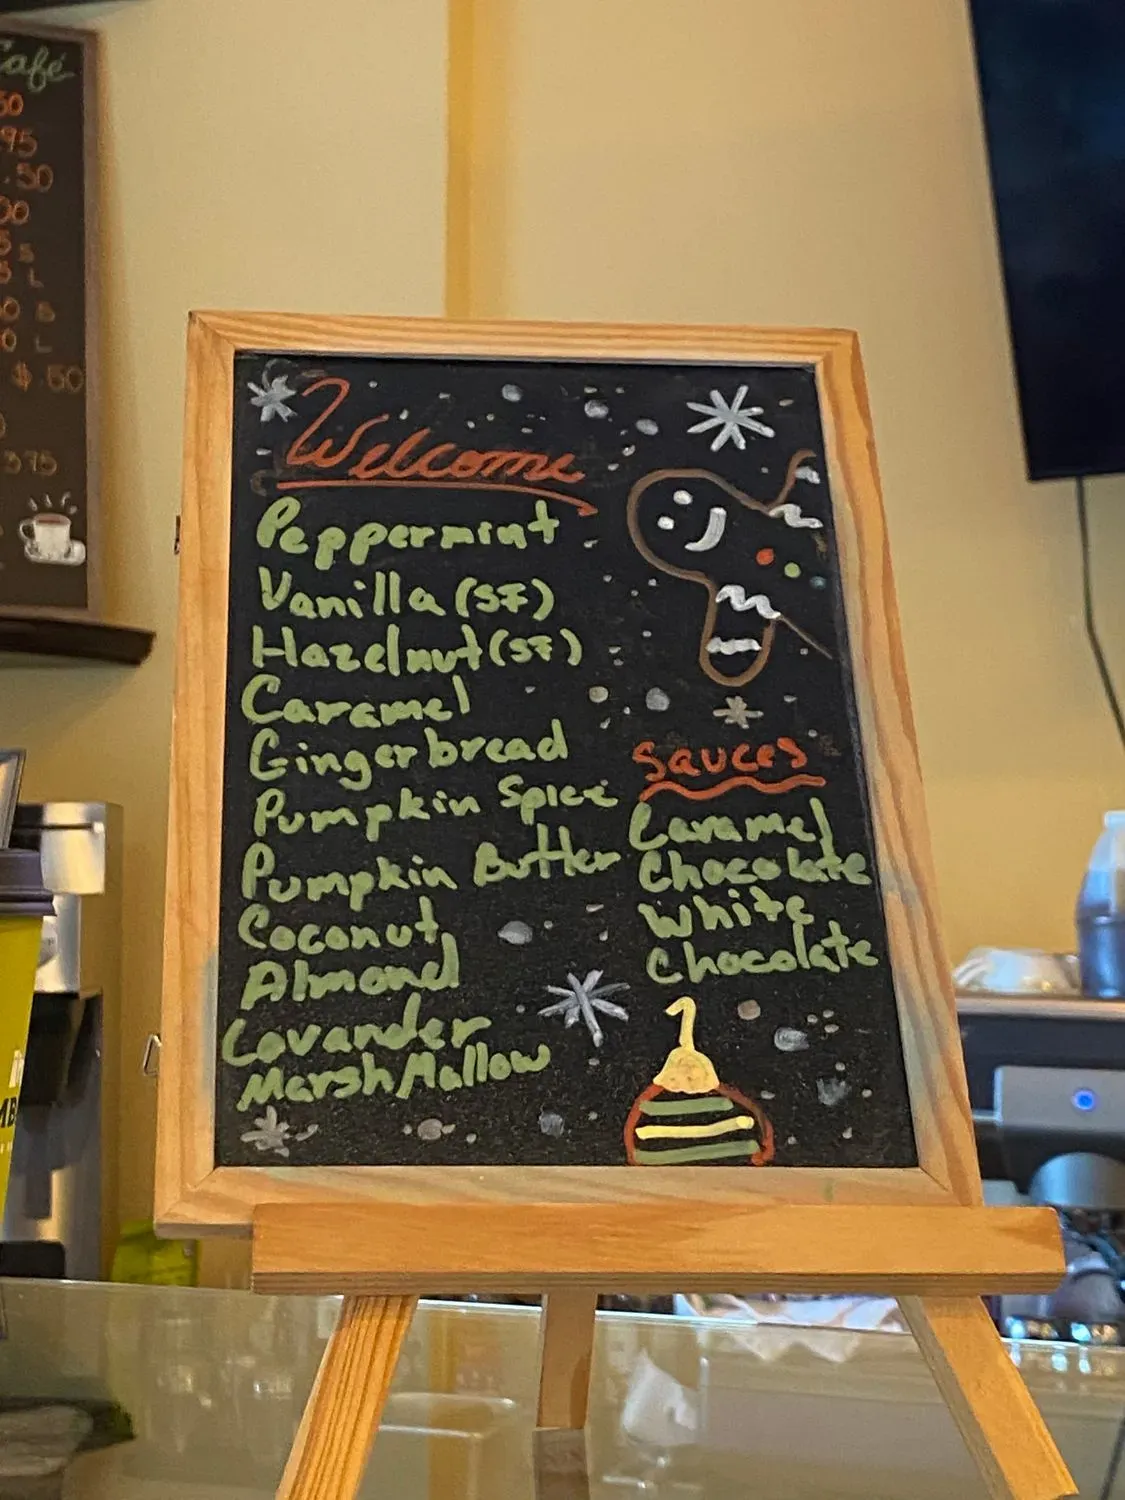 Café
50
95
.50
00
5 s
5 L
0 s
0 L
$.50
375
Welcome
Peppermint
Vanilla (SF)
Hazelnut (SF)
Caramel
Gingerbread
Pumpkin Spice
Pumpkin Butter
Coconut
Almond
Lavander
MarshMallow
Sauces
Caramel
Chocolate
White
Chocolate